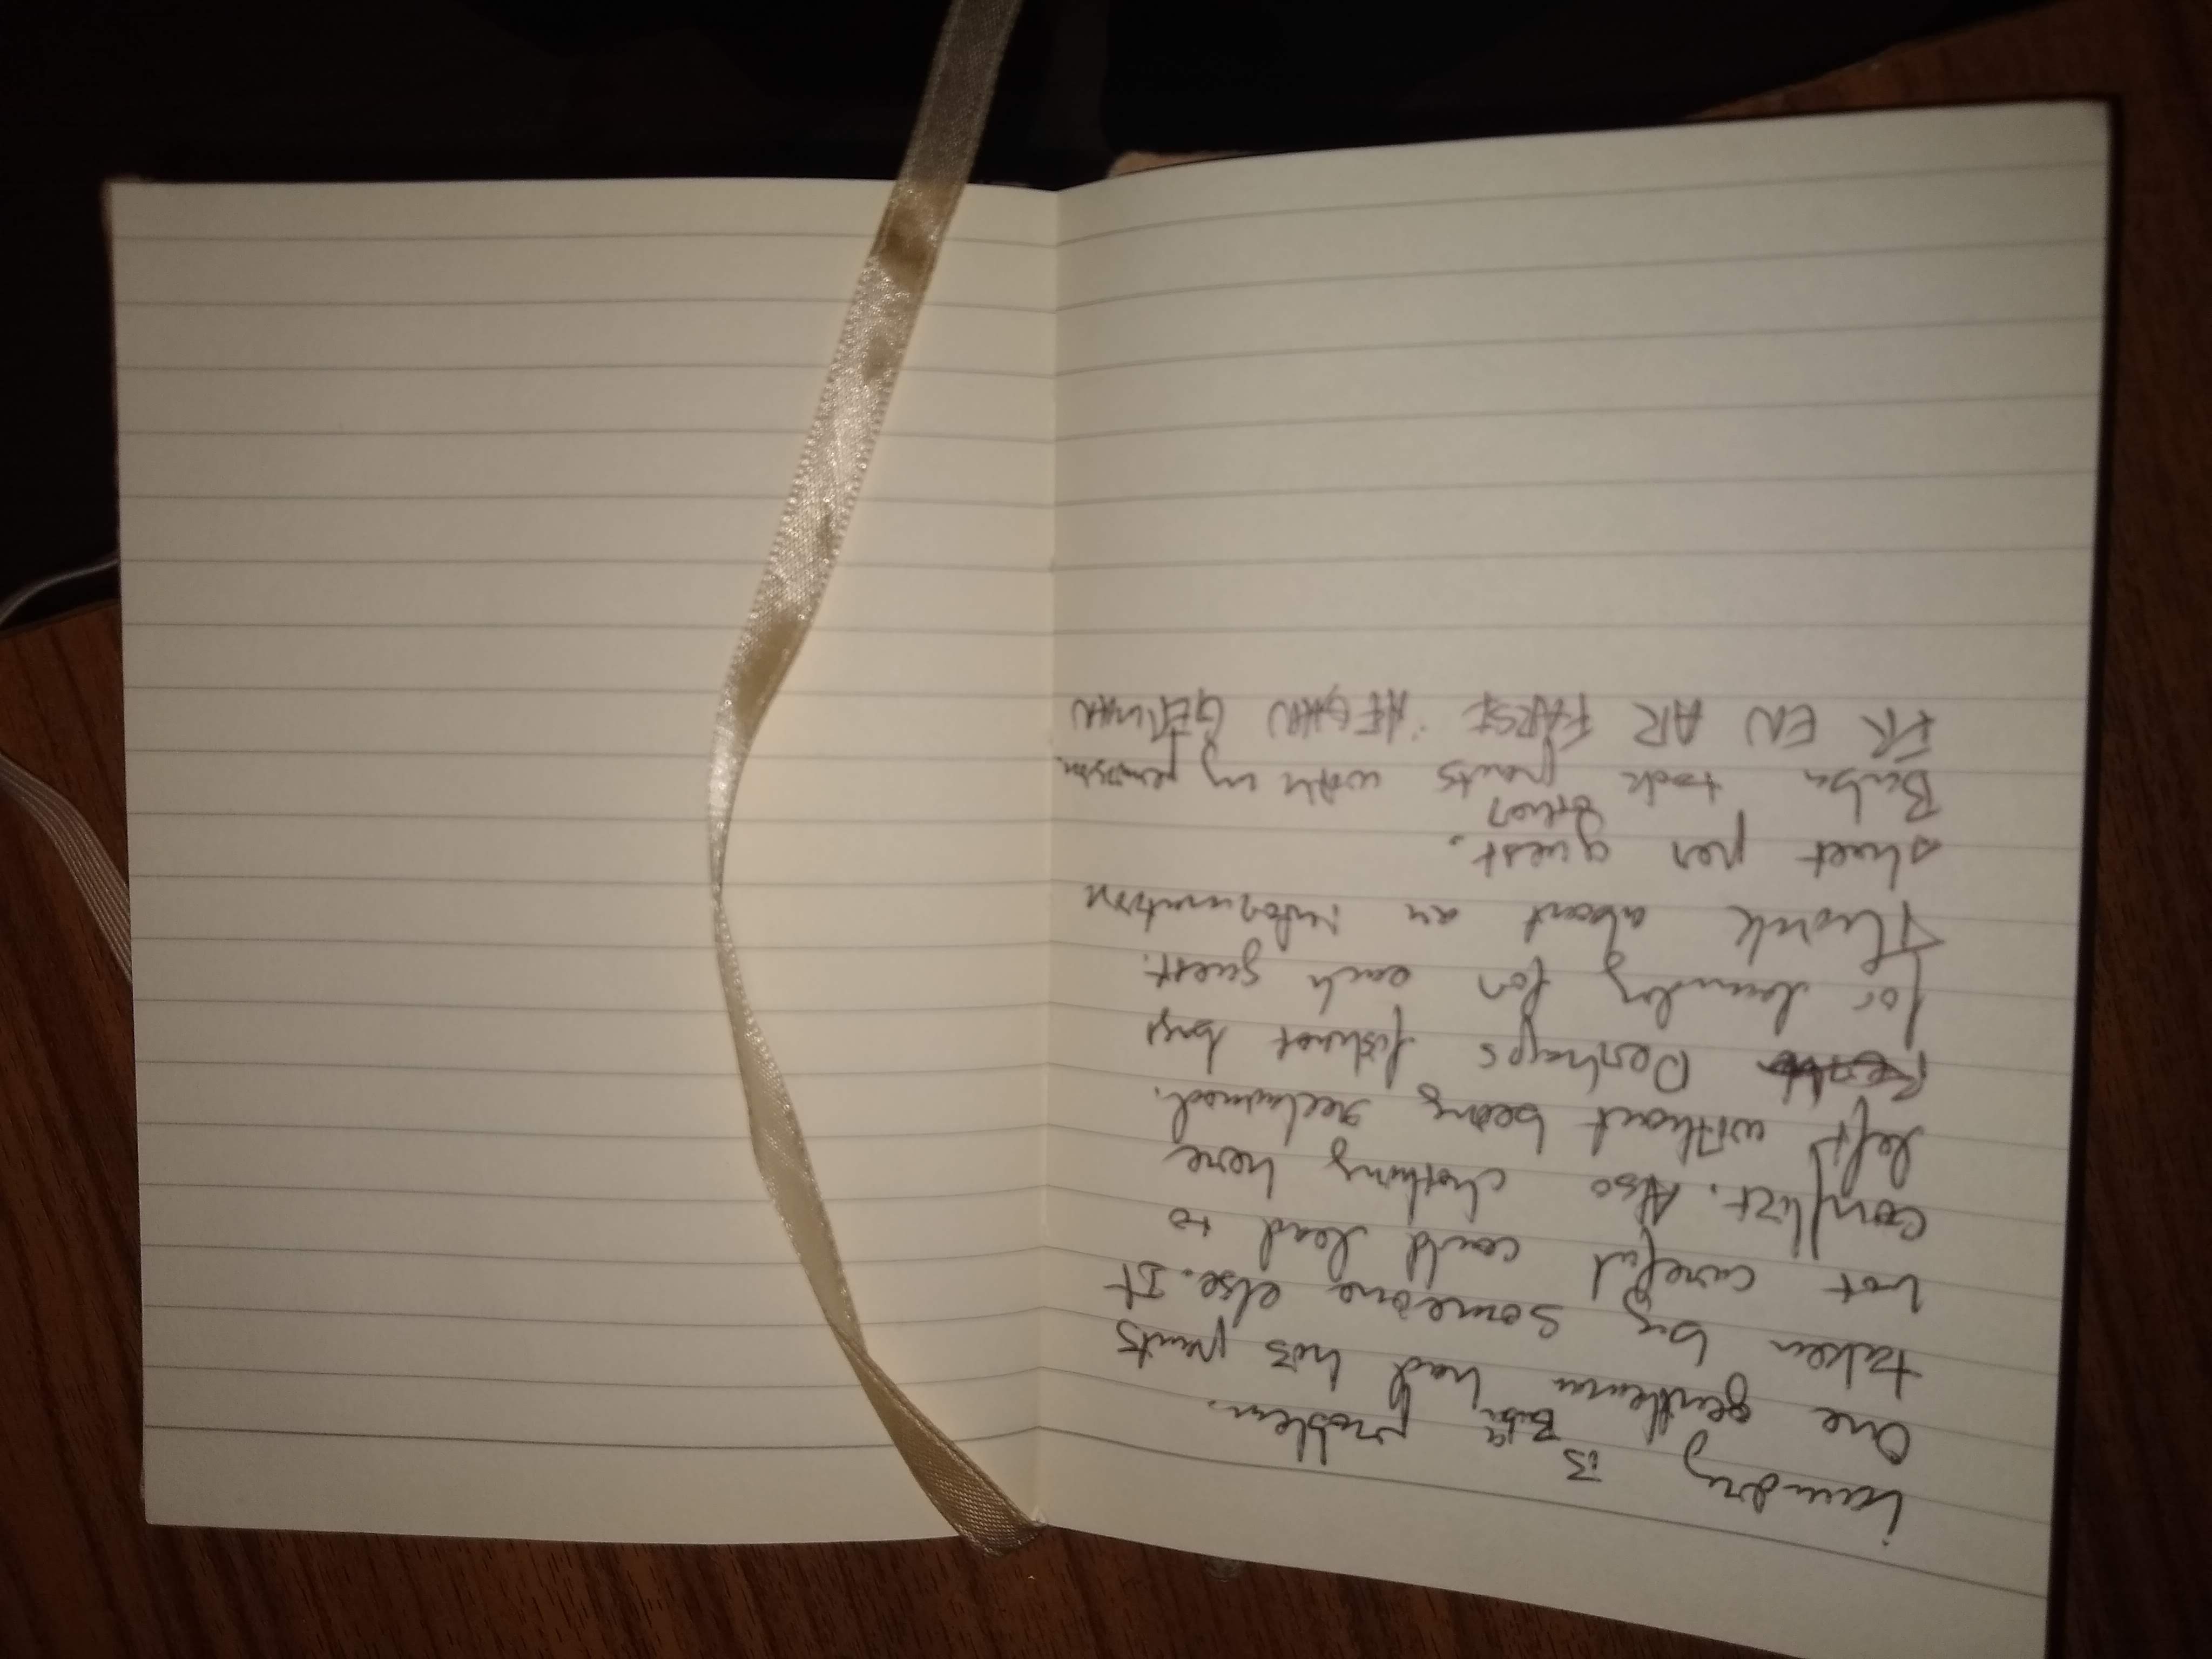 Laundry is a problem.
One gentleman Baba had his pants
taken by someone else. It
not careful could lead to
conflict. Also clothing here
left without being reclaimed.
Perhaps fishnet bags
for laundry for each guest.
Think about an information
sheet per guest.
Baba took other pants with my permission.
FR EN AR FARSI AFGHAN GERMAN